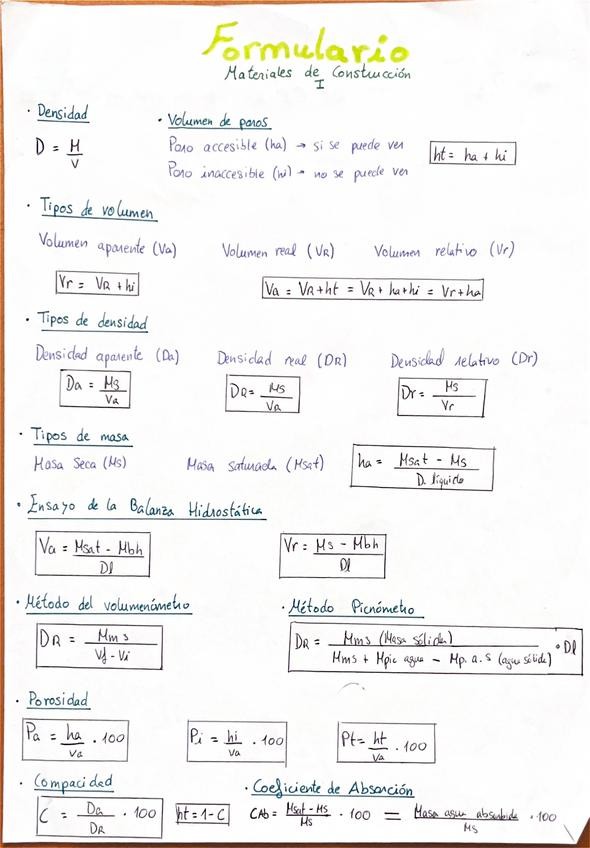 Formulario
Materiales de Construcción
I
· Densidad
D = M/V
· Volumen de poros
Poro accesible (ha) → si se puede ver
Poro inaccesible (hi) → no se puede ver
ht = ha + hi
· Tipos de volumen
Volumen aparente (Va) Volumen real (VR) Volumen relativo (Vr)
Vr = VR + hi
Va = VR + ht = VR + ha + hi = Vr + ha
· Tipos de densidad
Densidad aparente (Da) Densidad real (DR) Densidad relativo (Dr)
Da = Ms/Va
DR = Ms/VR
Dr = Ms/Vr
· Tipos de masa
Masa Seca (Ms) Masa saturada (Msat)
ha = Msat - Ms / D. líquido
· Ensayo de la Balanza Hidrostática
Va = Msat - Mbh / Dl
Vr = Ms - Mbh / Dl
· Método del volumenómetro
DR = Mms / Vf - Vi
· Método Picnómetro
DR = Mms (Masa sólida) / Mms + Mpic agua - Mp. a. s (agua sólida) · Dl
· Porosidad
Pa = ha/Va · 100
Pi = hi/Va · 100
Pt = ht/Va · 100
· Compacidad
C = Da/DR · 100
ht = 1 - C
· Coeficiente de Absorción
CAb = Msat - Ms / Ms · 100 = Masa agua absorbida / Ms · 100